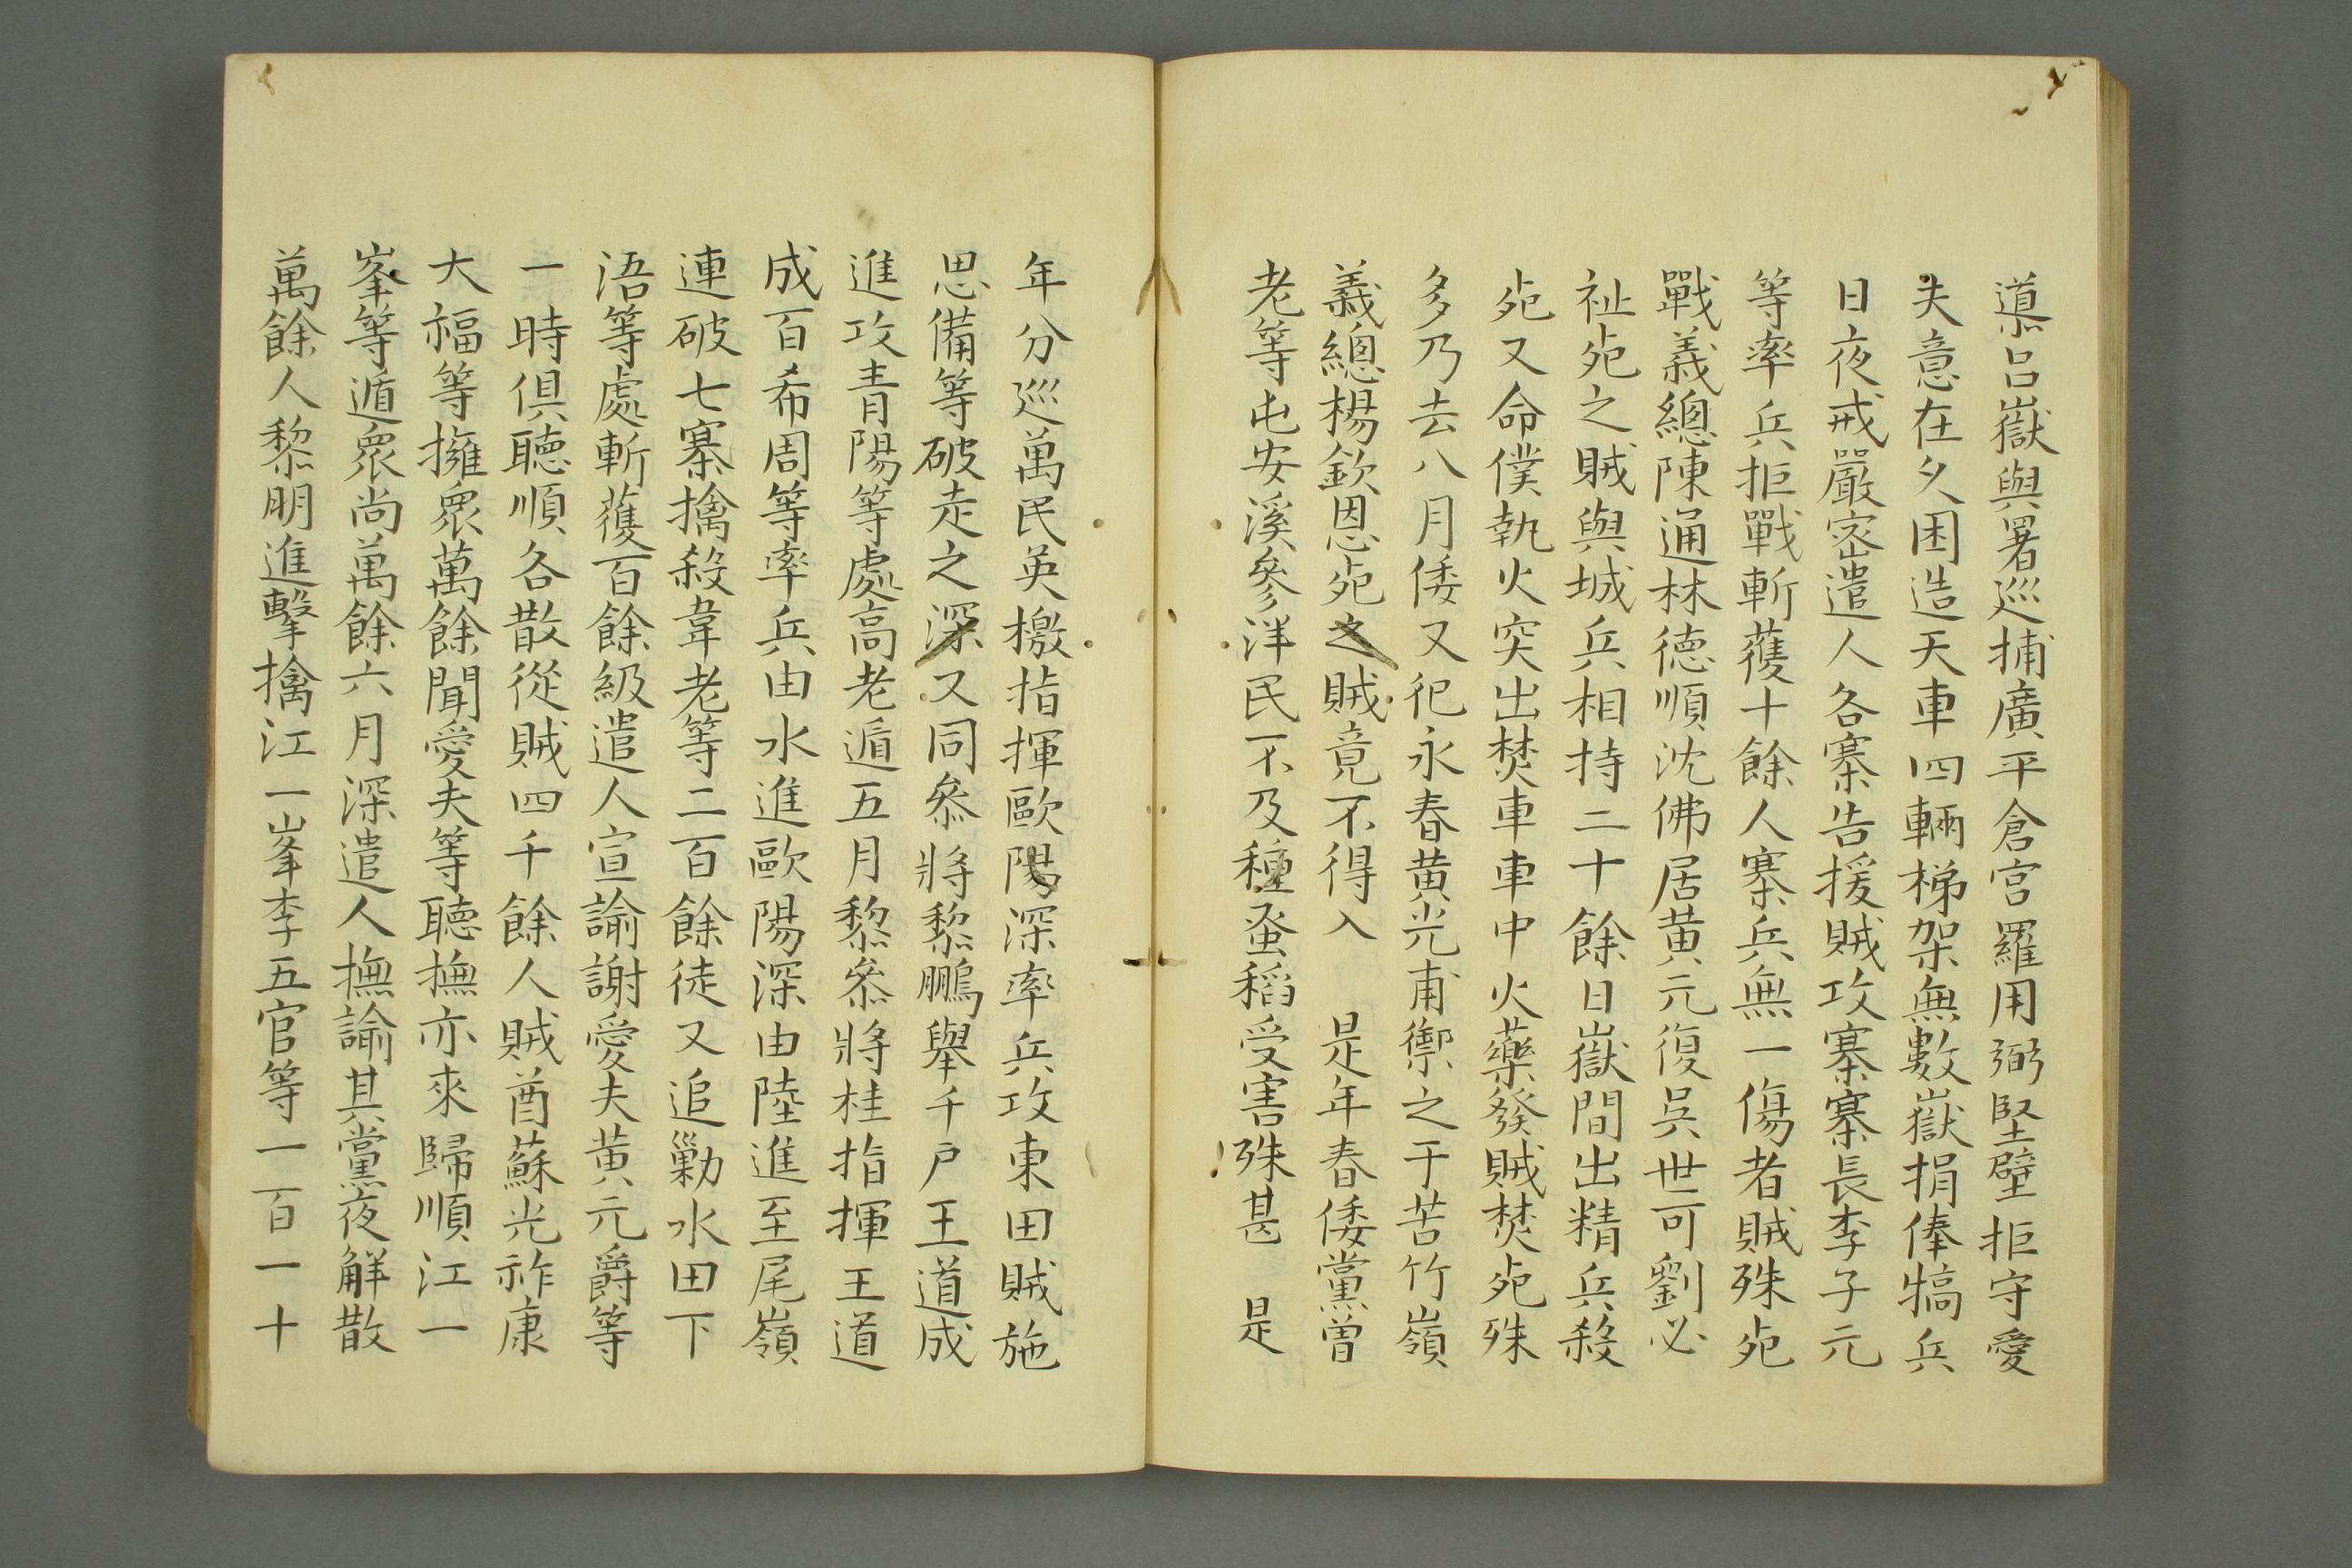 道燾呂嶽與署巡捕廣平倉官羅用弼堅壁拒守愛
夫意在久困造天車四輛梯架無數嶽捐俸犒兵
日夜戒嚴密遣人各寨告援賊攻寨寨長李子元
等率兵拒戰斬獲十餘人寨兵無一傷者賊殊死
戰義總陳通林德順沈佛居黄元復吳世可劉必
祉死之賊與城兵相持二十餘日嶽間出精兵殺
死又命僕執火突出焚車車中火藥發賊焚死殊
多乃去八月倭又犯永春黄光甫禦之于苦竹嶺
義總楊欽恩死之賊竟不得入　是年春倭黨曾
老等屯安溪參洋民不及種蚤稻受害殊甚　是
年分巡萬民英檄指揮歐陽深率兵攻東田賊施
思備等破走之深又同叅將黎鵬舉千戶王道成
進攻青陽等處高老遁五月黎叅將桂指揮王道
成百希周等率兵由水進歐陽深由陸進至尾嶺
連破七寨擒殺韋老等二百餘徒又追勦水田下
浯等處斬獲百餘級遣人宣諭謝愛夫黄元爵等
一時俱聽順各散從賊四千餘人賊酋蘇光祚康
大福等擁衆萬餘聞愛夫等聽撫亦來歸順江一
峯等遁衆尚萬餘六月深遣人撫諭其黨夜解散
萬餘人黎明進擊擒江一峯李五官等一百一十